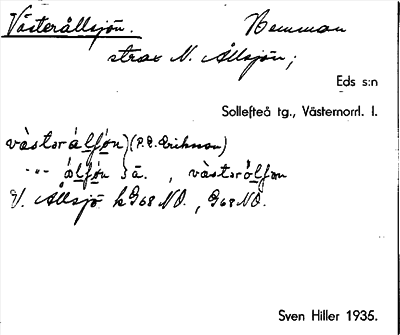 Västerållsjön. Hemman
strax N. Ållsjön;
Eds s:n
Sollefteå tg., Västernorrl. l.
våstərålʃøn) (P.E. Erikson)
-"- ålʃøn } ä. , våstərålʃøn
V. Ållsjö k G68 NO. , G68 NO.
Sven Hiller 1935.